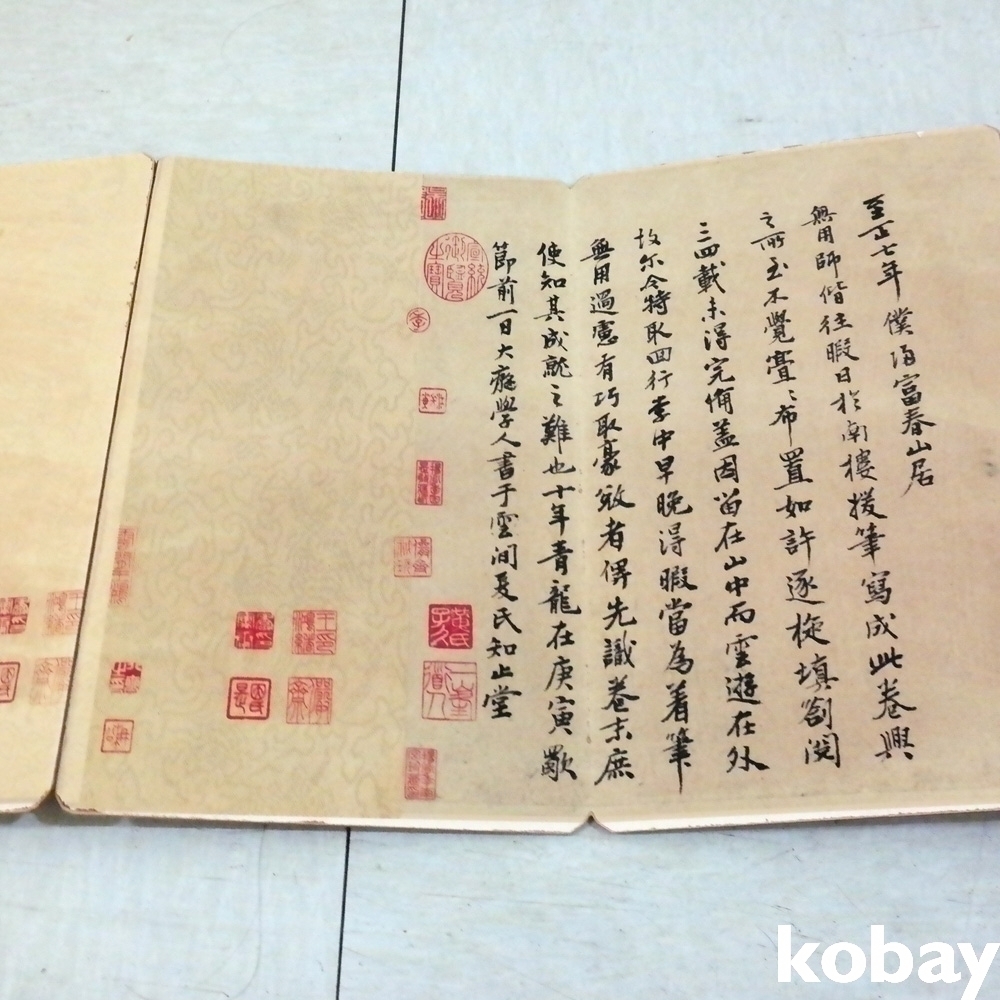 至正七年僕歸富春山居
無用師偕往暇日於南樓援筆寫成此卷興
之所至不覺亹亹布置如許逐旋填劄閱
三四載未得完備蓋因留在山中而雲遊在外
故尔今特取回行李中早晚得暇當為着筆
無用過慮有巧取豪敚者俾先識卷末庶
使知其成就之難也十年青龍在庚寅歜
節前一日大癡學人書于雲間夏氏知止堂
宣統御覽之寶
kobay